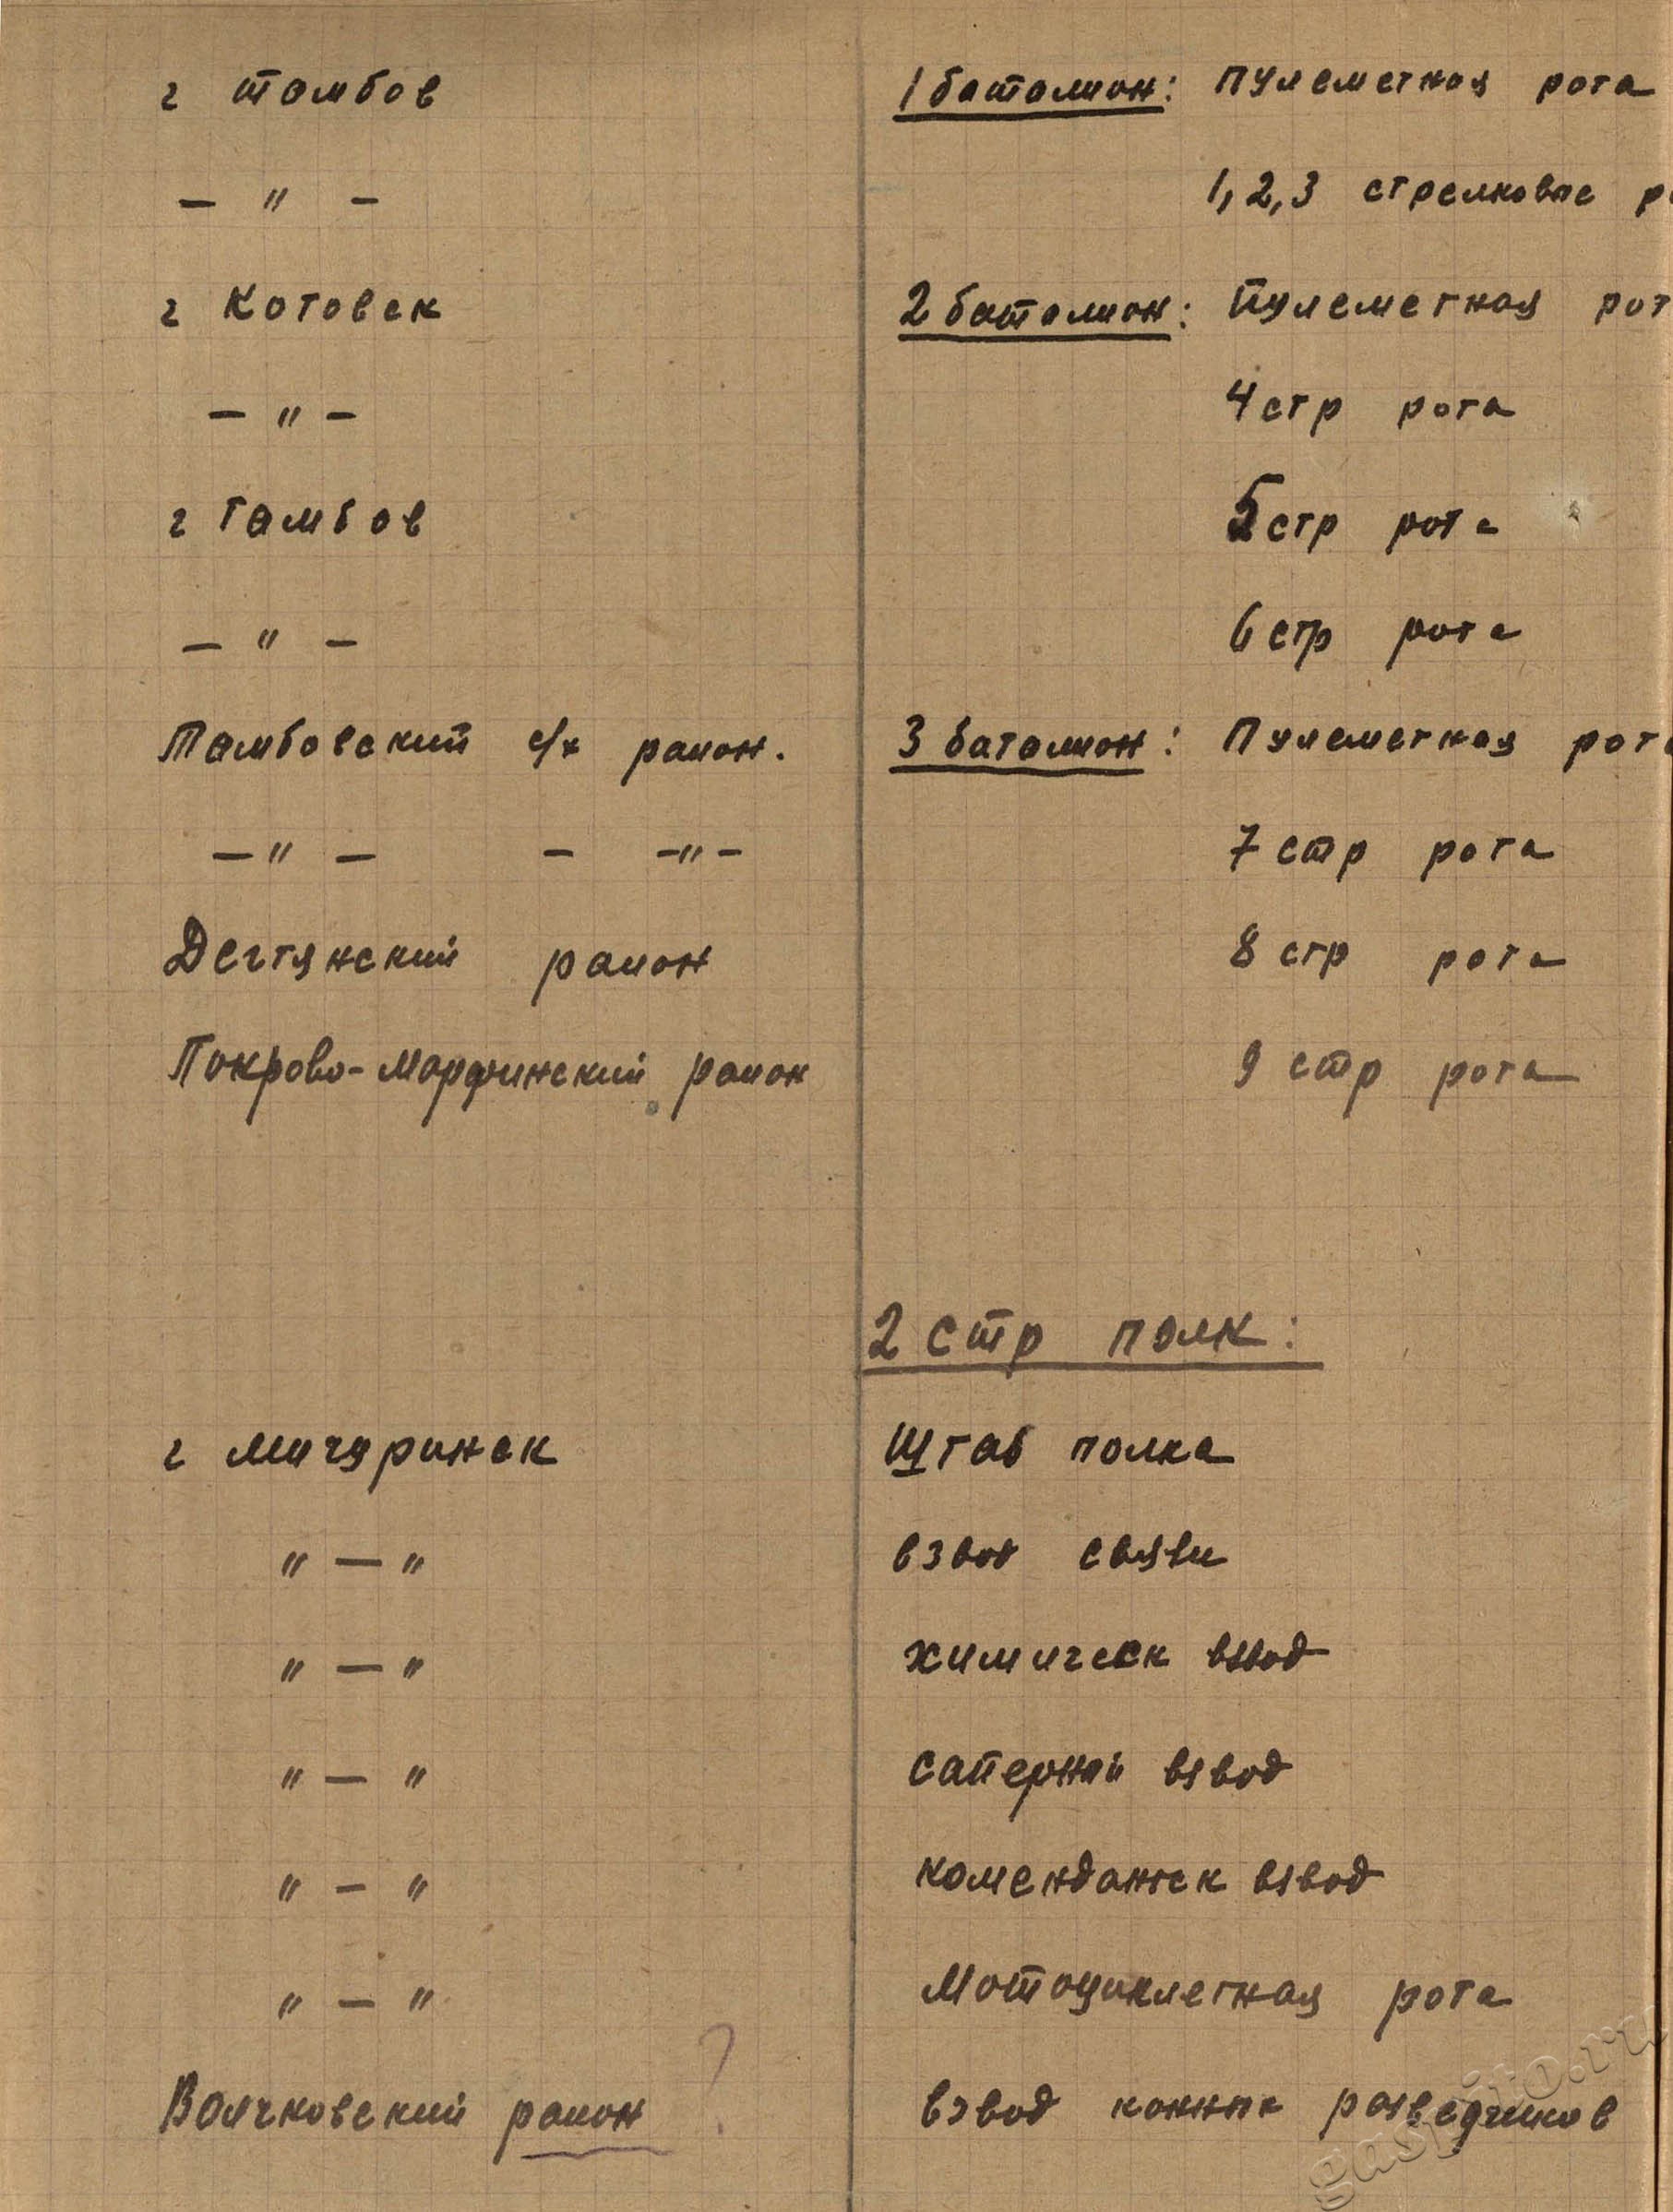 г Тамбов 1 батальон: Пулеметная рота
— " — 1, 2, 3 стрелковые
г Котовск 2 батальон: Пулеметная рот
— " — 4 стр рота
г Тамбов 5 стр рота
— " — 6 стр рота
Тамбовский с/х район. 3 батальон: Пулеметная рота
— " — — — " — 7 стр рота
Дегтянский район 8 стр рота
Покрово-Марфинский район 9 стр рота
2 стр полк:
г Мичуринск Штаб полка
" — " взвод связи
" — " химическ взвод
" — " саперный взвод
" — " комендантск взвод
" — " Мотоциклетная рота
Волчковский район ? взвод конных разведчиков
gaspito.ru